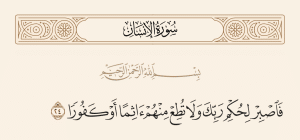 سُورَةُ الإِنسَان
بِسْمِ اللَّهِ الرَّحْمَٰنِ الرَّحِيمِ
فَاصْبِرْ لِحُكْمِ رَبِّكَ وَلَا تُطِعْ مِنْهُمْ ءَاثِمًا أَوْ كَفُورًا ٢٤